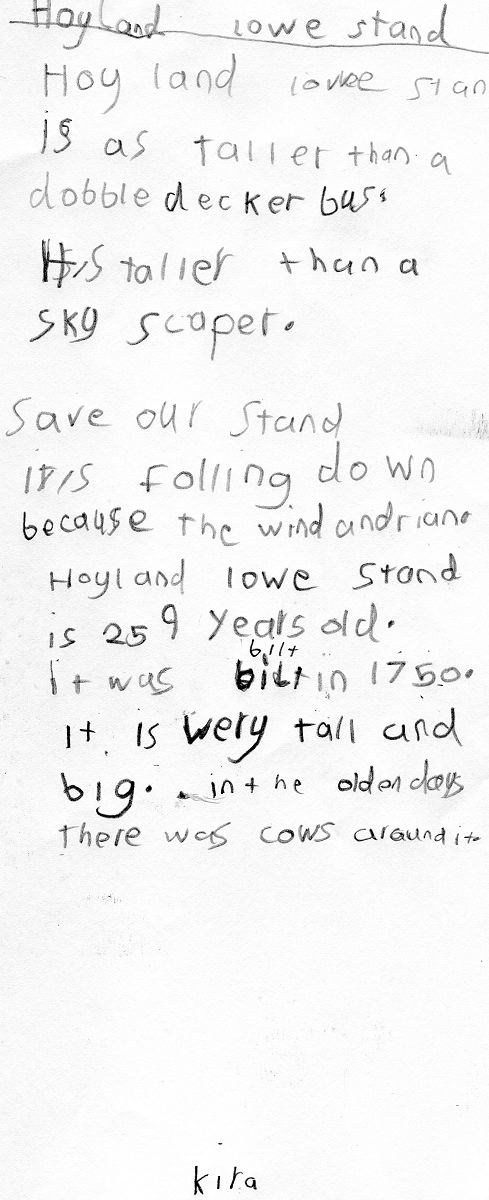 Hoyland lowe stand
Hoy land lowe stan
is as taller than a
dobble decker bus.
It is taller than a
sky scaper.
Save our Stand
it is folling down
because the wind and rian.
Hoyland lowe Stand
is 259 years old.
billt
It was bilt in 1750.
It is very tall and
big. in the olden days
there was cows around it.
kira